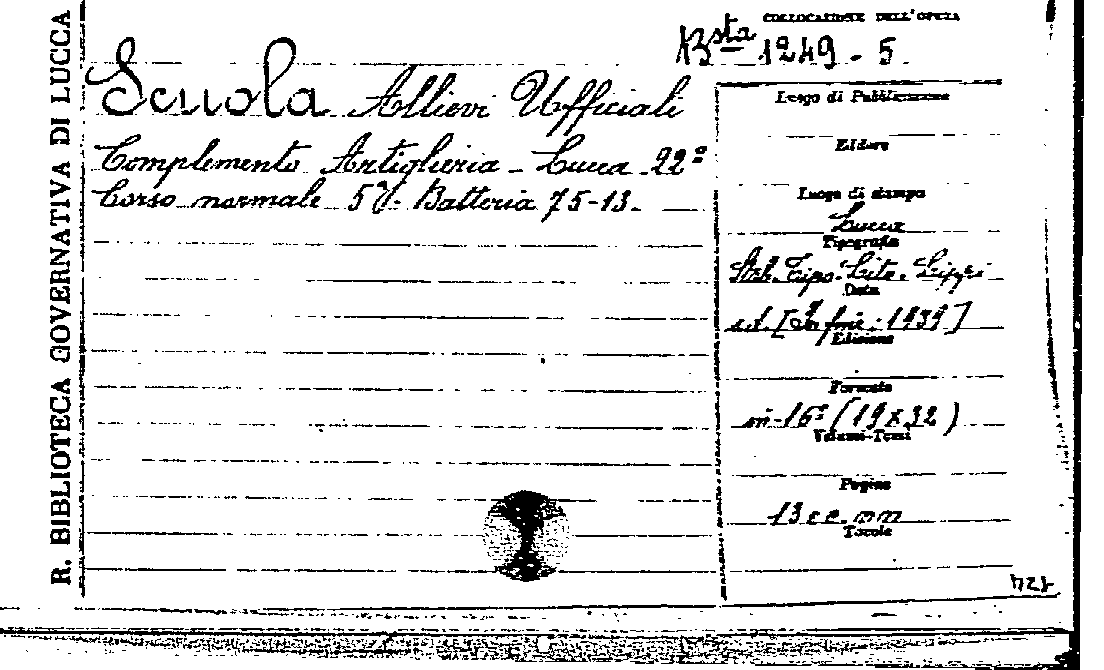 R. BIBLIOTECA GOVERNATIVA DI LUCCA
COLLOCAZIONE DELL'OPERA
Bsta 1249-5
Scuola Allievi Ufficiali
Complemento Artiglieria - Lucca 22º
Corso normale 5ª Batteria 75-13.
Luogo di Pubblicazione
Editore
Luogo di stampo
Lucca
Tipografia
Stab. Tipo-Lito. Lippi
Data
s.d. [In fine: 1939]
Edizione
Formato
in-16º (19x32)
Volumi-Tomi
Pagine
13 cc. nn
Tavole